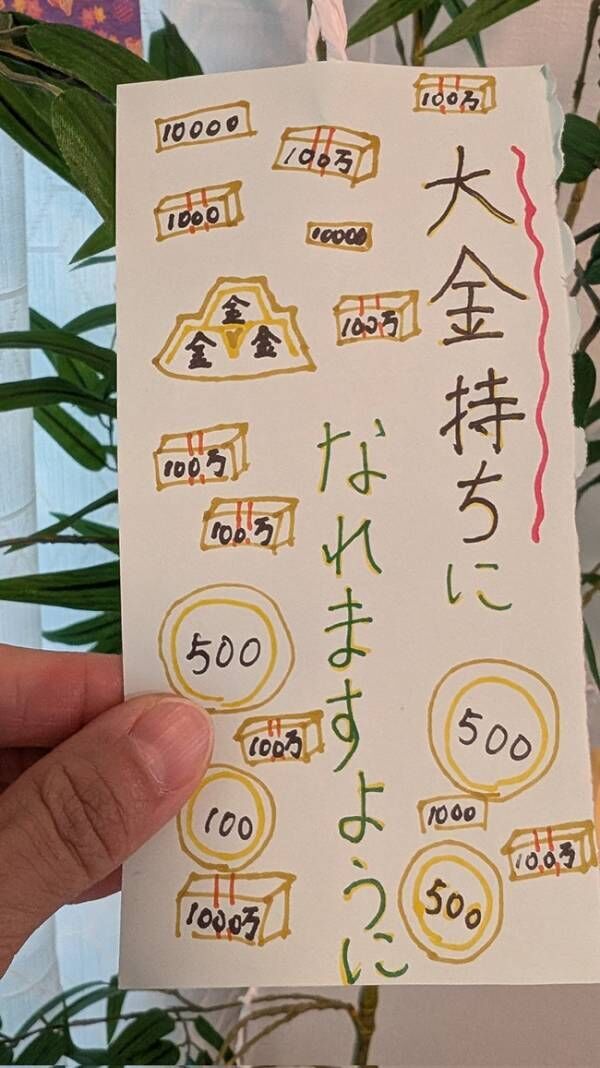 大金持ちに
なれますように
100万
10000
100万
1000
10000
金
金 金
100万
100万
100万
500
100万
500
100
1000
100万
1000万
500